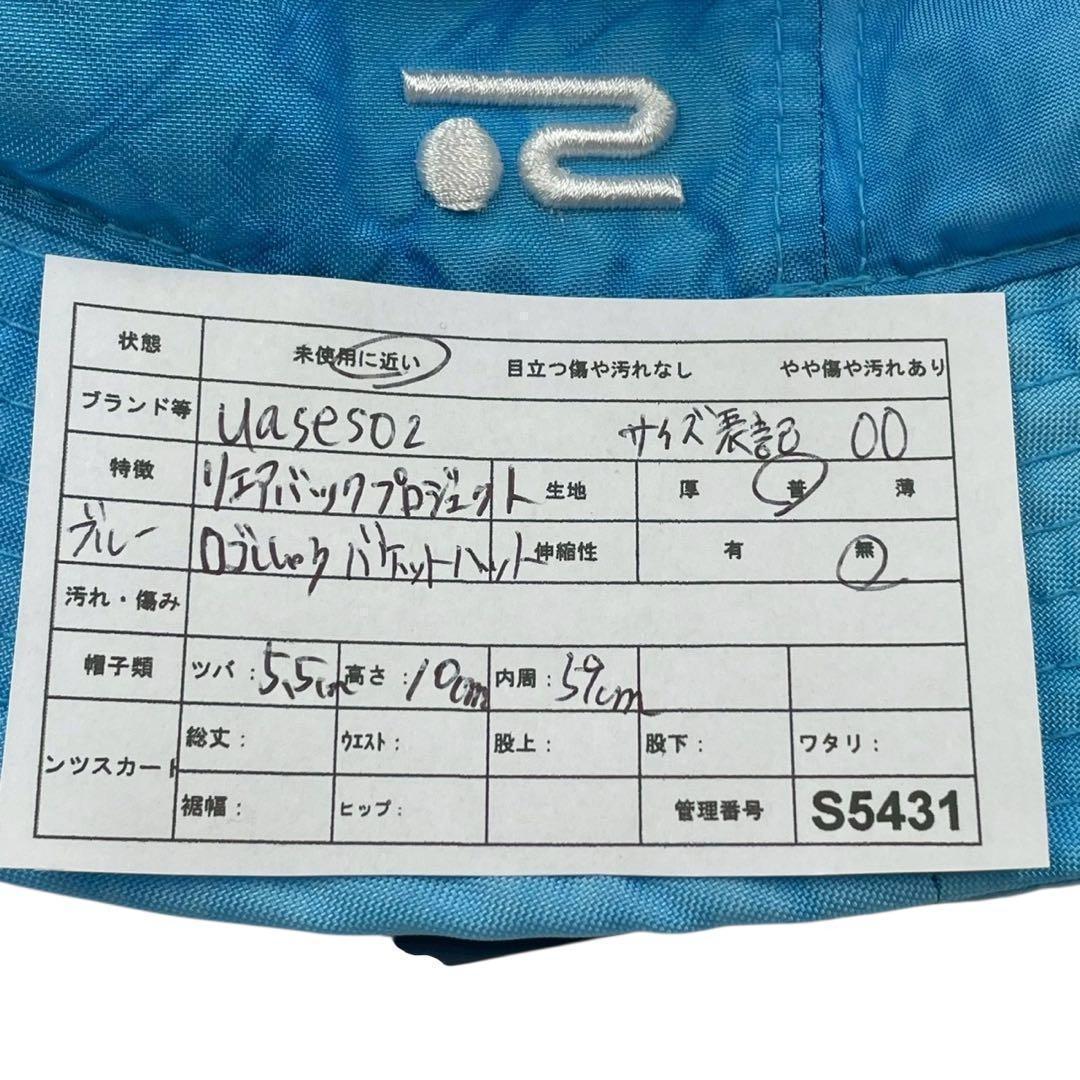 状態 未使用に近い 目立つ傷や汚れなし やや傷や汚れあり
ブランド等 uases02 サイズ表記 00
特徴 リエアバックプロジェクト 生地 厚 普 薄
ブルー ロゴししゅう バケットハット 伸縮性 有 無
汚れ・傷み
帽子類 ツバ: 5.5cm 高さ: 10cm 内周: 59cm
ンツスカート 総丈: ウエスト: 股上: 股下: ワタリ:
裾幅: ヒップ: 管理番号 S5431